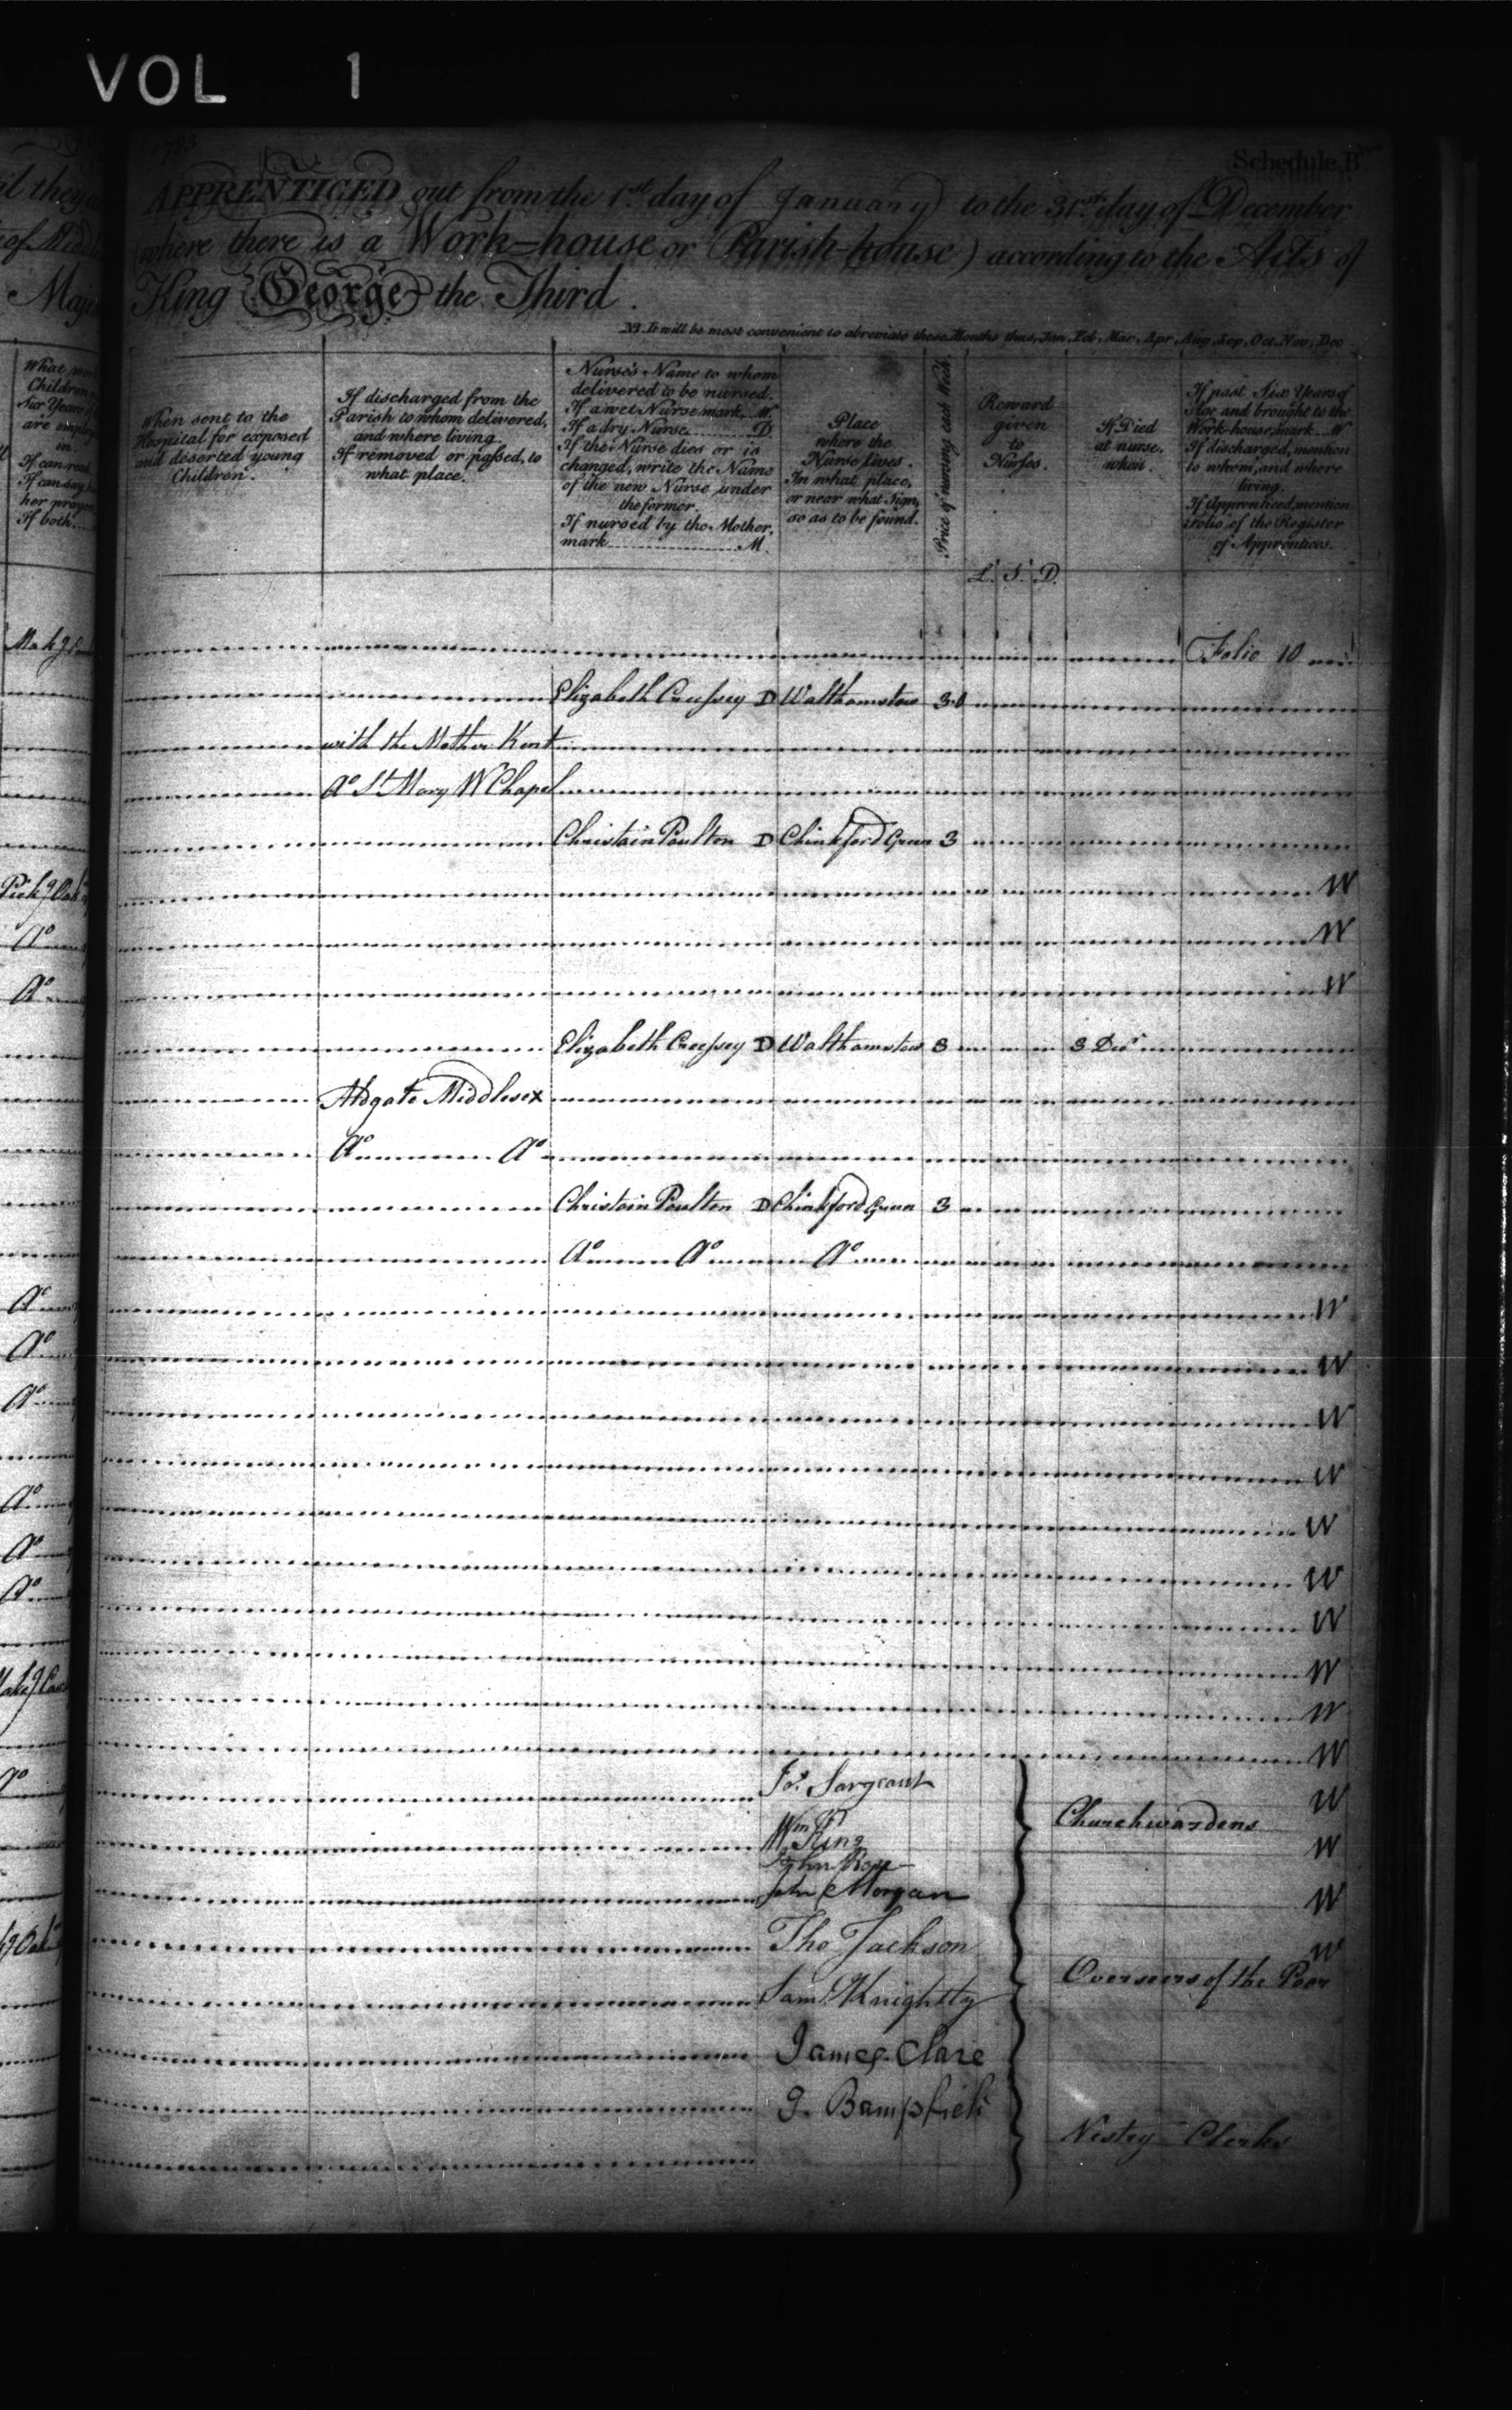 VOL 1
1783
Schedule B
APPRENTICED out from the 1st. day of January to the 31st. day of December
(where there is a Work=house or Parish-house) according to the Acts of
King George the Third.
NB. It will be most convenient to abreviate these Months thus, Jan, Feb, Mar, Apr, Aug, Sep, Oct, Nov, Dec
When sent to the
Hospital for exposed
and deserted young
Children.
If discharged from the
Parish to whom delivered,
and where living.
If removed or passed, to
what place.
Nurse's Name to whom
delivered to be nursed.
If a wet Nurse mark, W
If a dry Nurse D
If the Nurse dies or is
changed, write the Name
of the new Nurse under
the former.
If nursed by the Mother,
mark M.
Place
where the
Nurse lives.
In what place,
or near what Sign,
so as to be found.
Price of nursing each Week.
Reward
given
to
Nurses.
L. S. D.
If Died
at nurse,
when.
If past Six Years of
Age and brought to the
Work-house, mark W
If discharged, mention
to whom, and where
living.
If Apprenticed, mention
Folio of the Register
of Apprentices.
Folio 10
Elizabeth Cressey D Walthamstow 3.0
with the Mother Kent
Do St Mary W Chapel
Christain Poulton D Chinkford Green 3
W
W
W
Elizabeth Cressey D Walthamstow 3 3 Decr
Aldgate Middlesex
Do Do
Christain Poulton D Chinkford Green 3
Do Do Do
W
W
W
W
W
W
W
W
W
W
Jos. Sargeant
Churchwardens W
Wm King W
John Rose
John Morgan W
Tho Jackson W
Overseers of the Poor
Saml Knightly
James Clare
J. Bampfield
Vestry Clerks